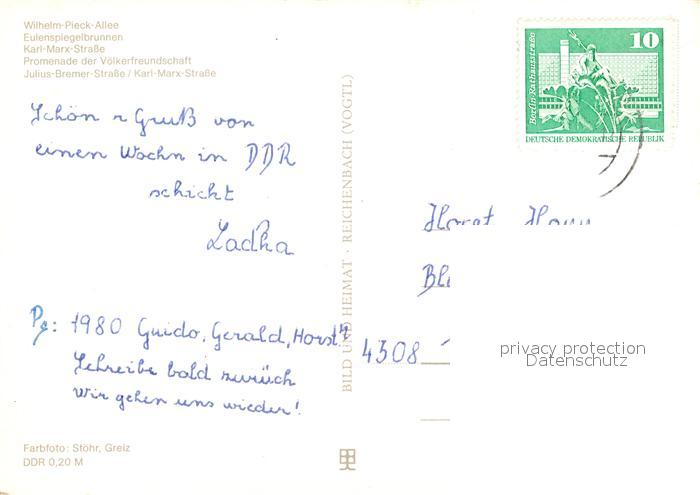 Wilhelm-Pieck-Allee
Eulenspiegelbrunnen
Karl-Marx-Straße
Promenade der Völkerfreundschaft
Julius-Bremer-Straße / Karl-Marx-Straße
Schön r Gruß von
einen Wochn in DDR
schickt
Ladka
Pg: 1980 Guido, Gerald, Horst
Schreibe bald zurück
Wir gehen uns wieder!
Farbfoto: Stöhr, Greiz
DDR 0,20 M
BILD UND HEIMAT · REICHENBACH (VOGTL)
10
Berlin·Rathausstraße
DEUTSCHE DEMOKRATISCHE REPUBLIK
Horst
4308
privacy protection
Datenschutz